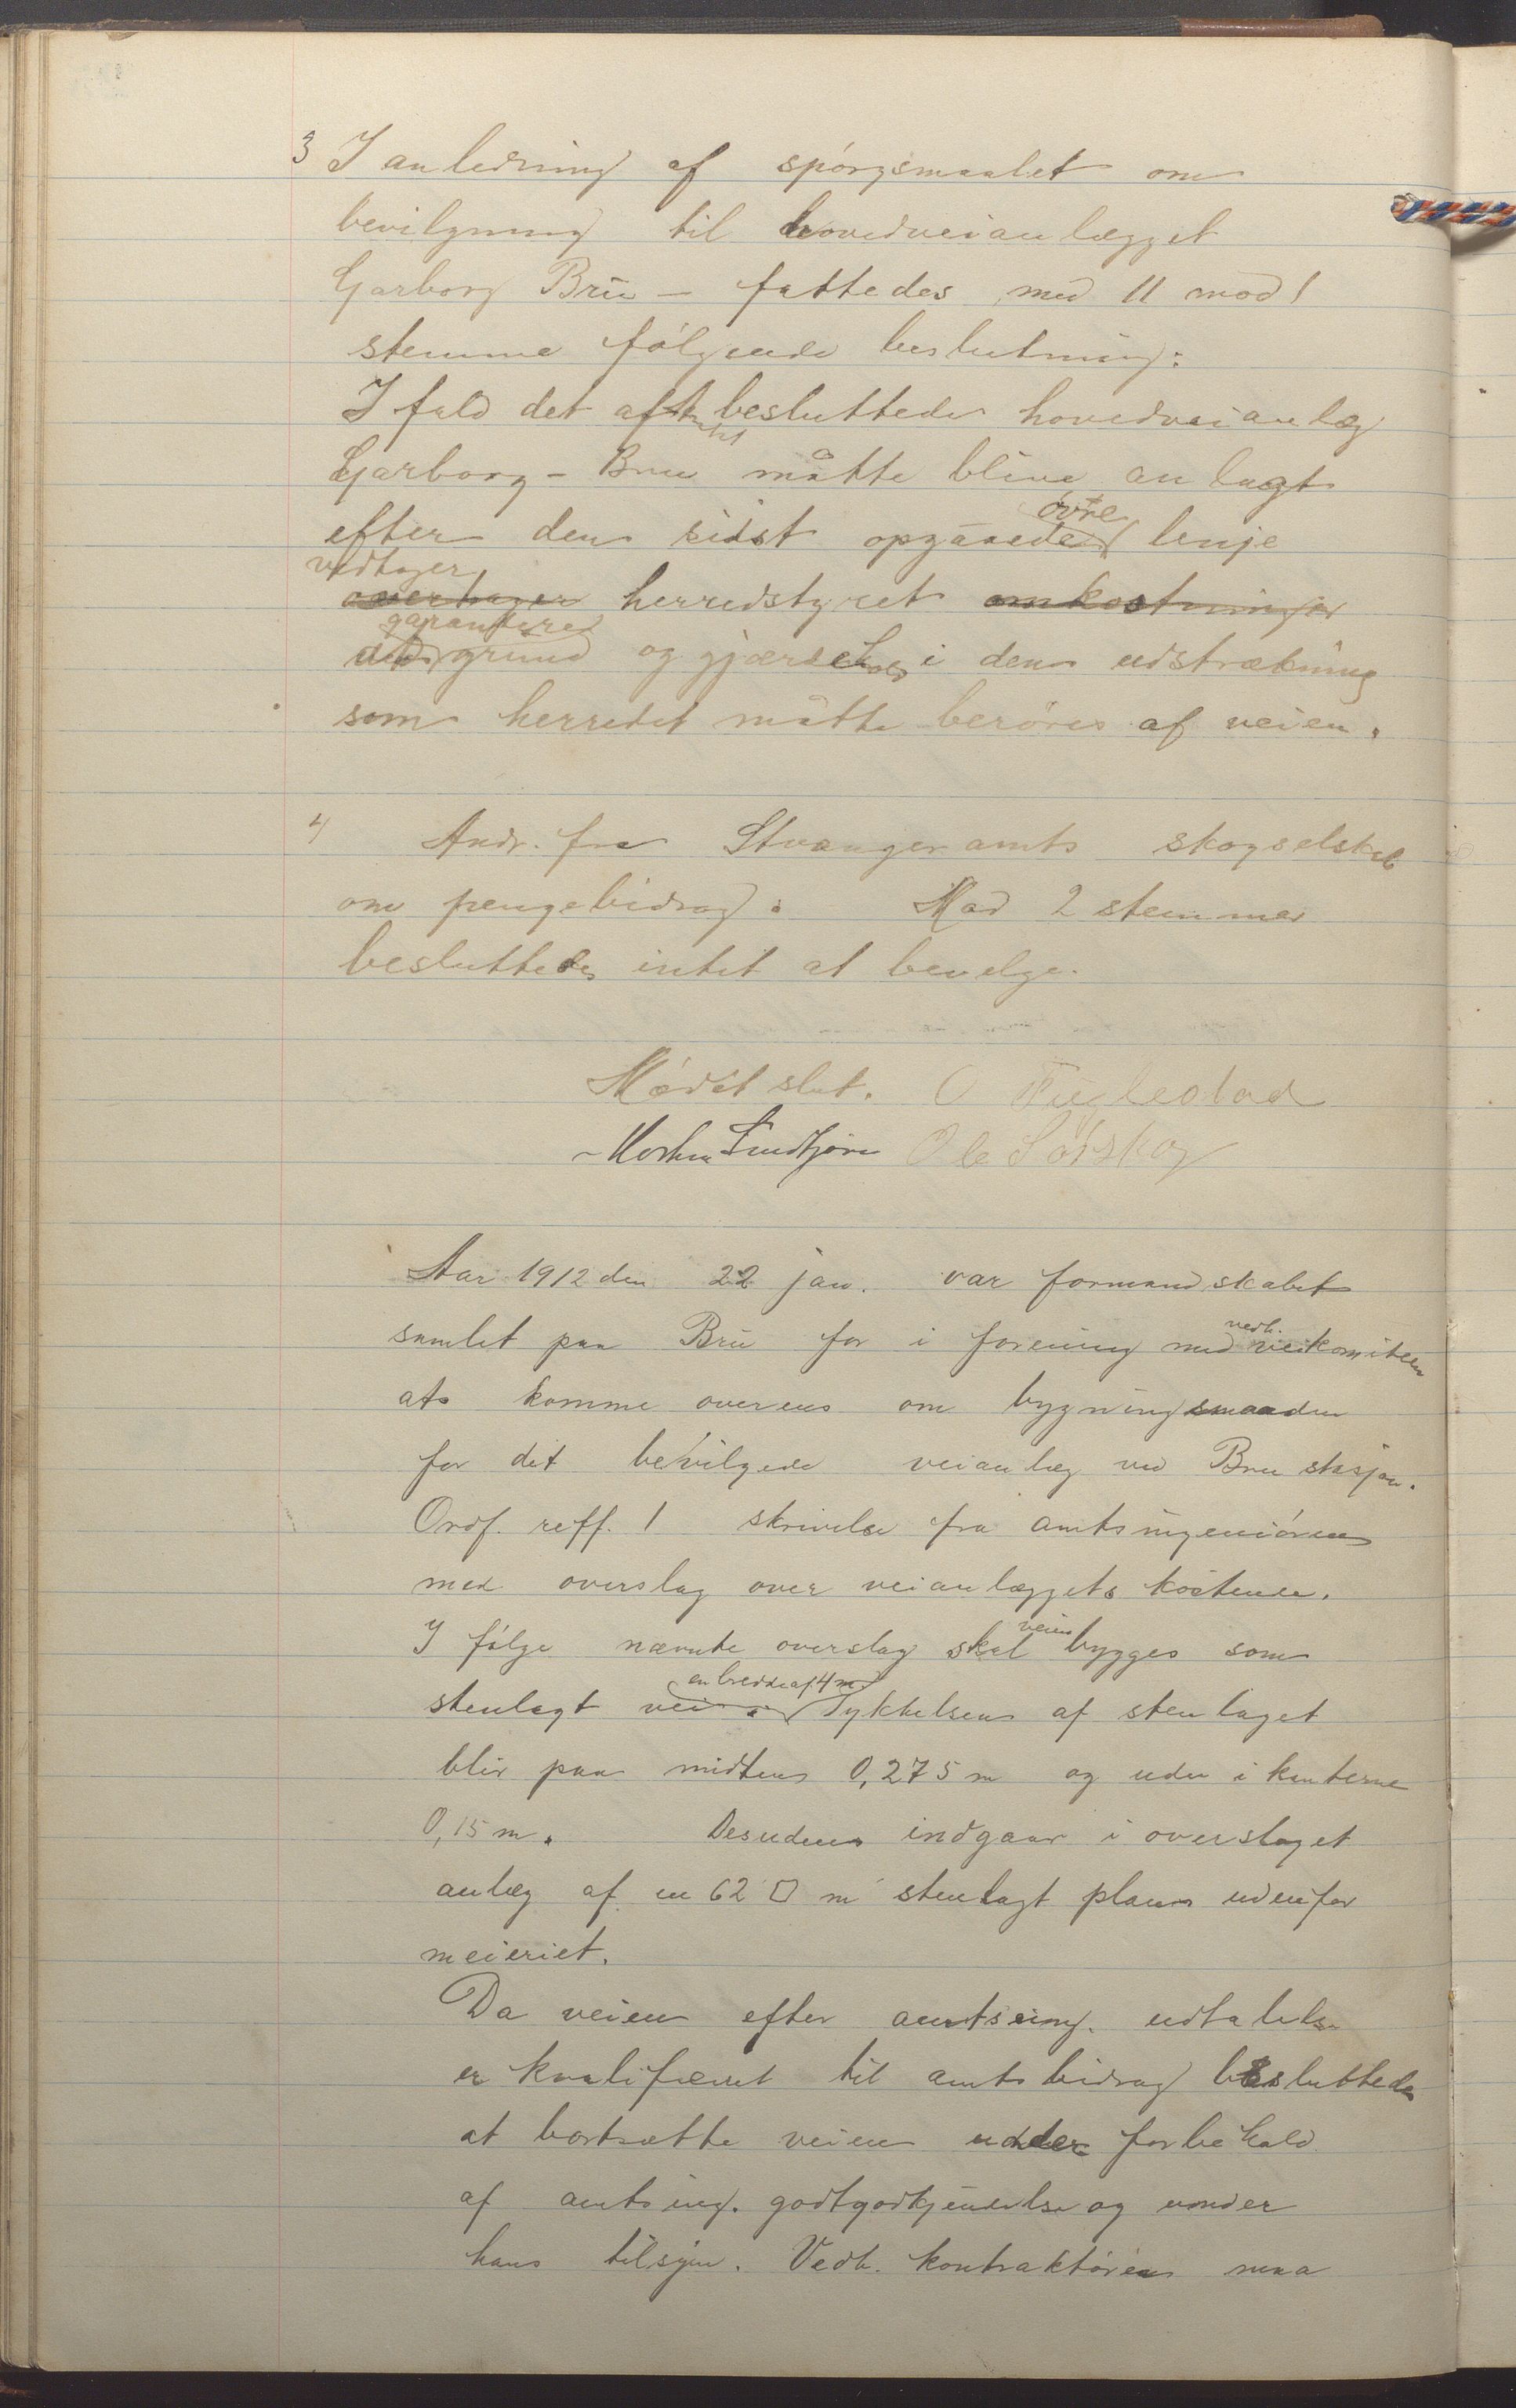 3 I anledning af spørgsmaalet om
bevilgning til hovedveianlægget
Garborg Bru – fattedes med 11 mod 1
stemme følgende beslutning:
I fald det af amtet besluttede hovedveianlæg
Garborg – Bru måtte blive anlagt
efter den sidst opgåede øvre linje
vedtager overtager herredstyret omkostninger
garantere grund og gjærdehold i den udstrækning
som herredet måtte berøres af veien.
4/ Andr. fra Stvanger amts skogselskab
om pengebidrag. Mod 2 stemmer
besluttedes intet at bevilge.
Mødet slut. O Fuglestad
Morten Lindtjørn Ole Sørskog
Aar 1912 den 22 jan. var formandskabet
samlet paa Bru for i forening med vedk. veikomiteen
at komme overens om bygningsmaaden
for det bevilgede veianlæg ved Bru stasjon.
Ordf. reff. 1 skrivelse fra amtsingeniøren
med overslag over veianlæggets kostende.
I følge nævnte overslag skal veien bygges som
stenlagt vei en bredde af 4 m. Tykkelsen af stenlaget
blir paa midten 0,275 m og ude i kanterne
0,15 m. Desuden indgaar i overslaget
anlæg af en 62 □ m stenlagt plan udenfor
meieriet.
Da veien efter amtsing. udtalelse
er kvalifiseret til amtsbidrag besluttedes
at bortsætte veien under forbehold
af amtsing. godtgodkjendelse og under
hans tilsyn. Vedk. kontraktøren maa